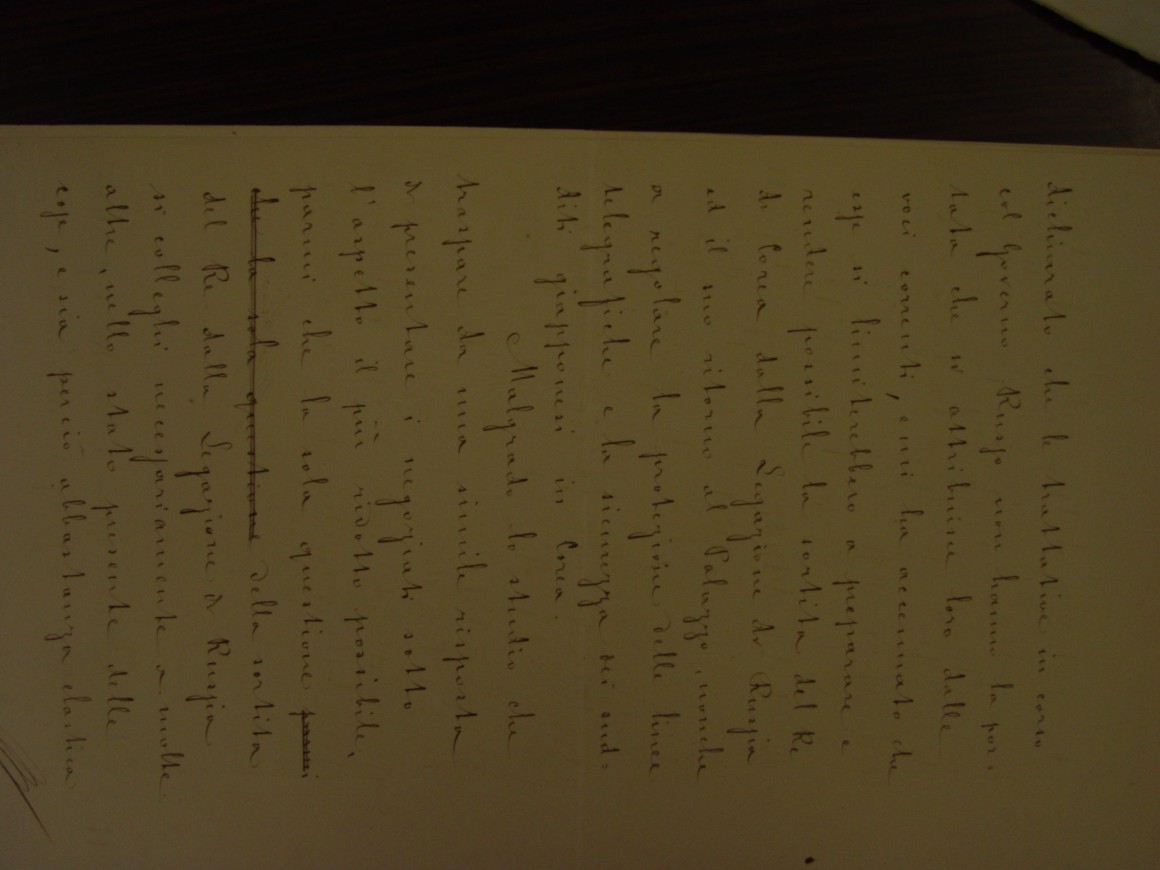 dichiarato che le trattative in corso
col Governo Russo non hanno la por-
tata che si attribuisce loro dalle
voci correnti, e mi ha accennato che
esse si limiterebbero a preparare e
rendere possibile la sortita del Re
di Corea dalla Legazione di Russia
ed il suo ritorno al Palazzo, nonchè
a regolare la protezione delle linee
telegrafiche e la sicurezza dei sud=
diti giapponesi in Corea.
Malgrado lo studio che
traspare da una simile risposta
di presentare i negoziati sotto
l'aspetto il più ridotto possibile,
parmi che la sola questione parmi
che la sola questione della sortita
del Re dalla Legazione di Russia
si colleghi necessariamente a molte
altre, nello stato presente delle
cose, e sia perciò abbastanza elastica